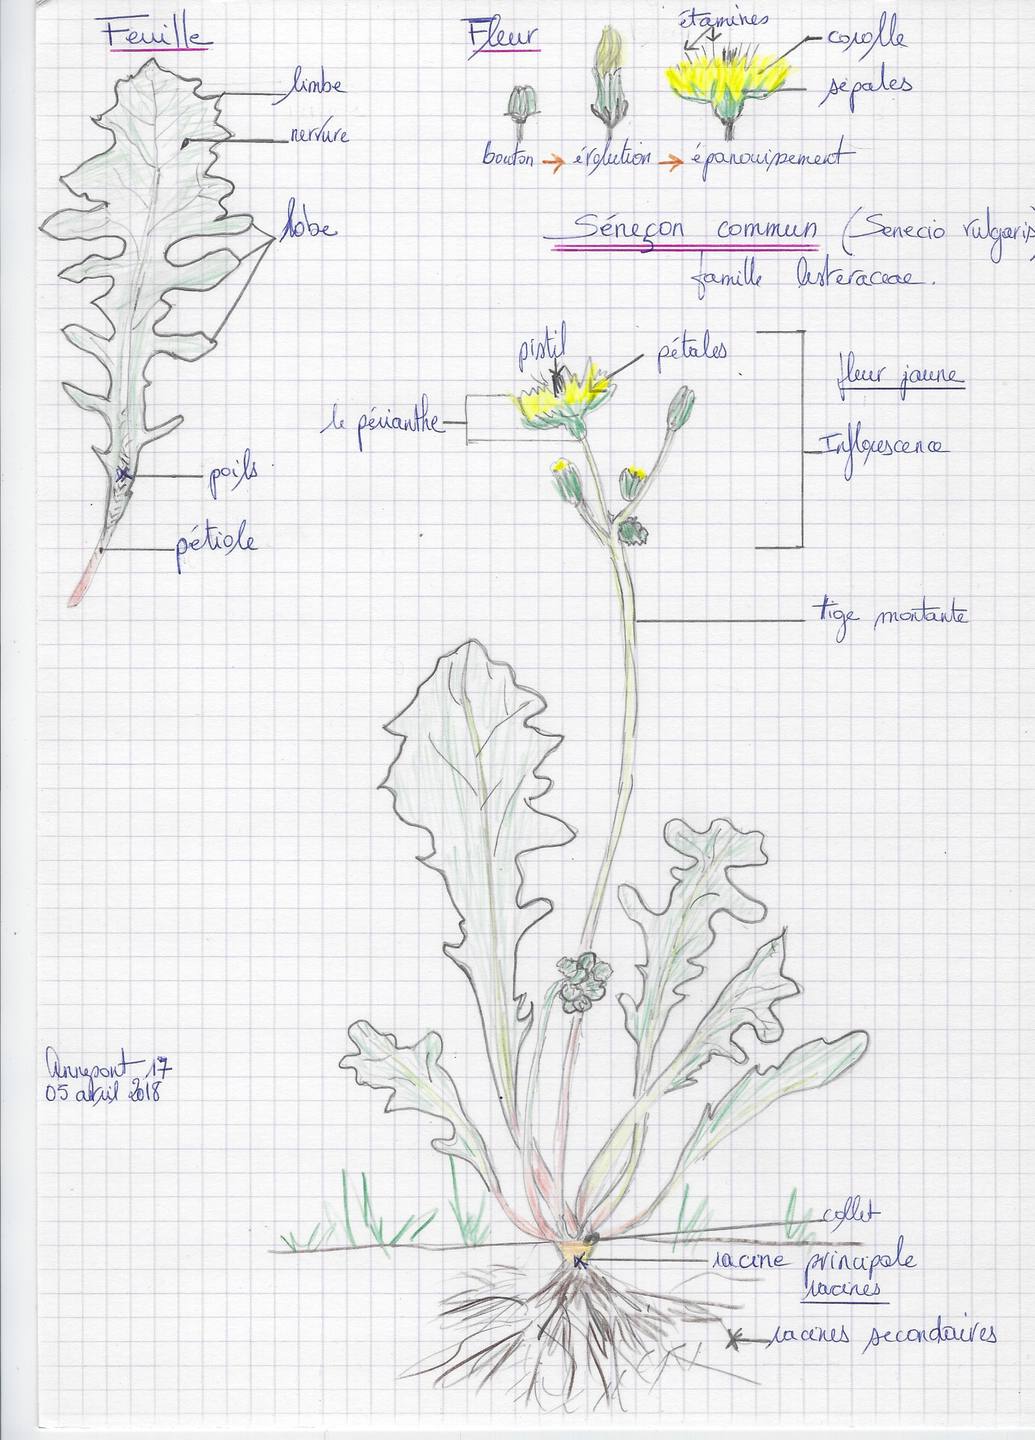 Feuille
limbe
nervure
lobe
poils
pétiole
Fleur
étamines
corolle
sépales
bouton → évolution → épanouissement
Séneçon commun (Senecio vulgaris)
famille Asteraceae.
pistil
pétales
le périanthe
fleur jaune
Inflorescence
tige montante
Annepont 17
05 avril 2018
collet
racine principale
racines
racines secondaires